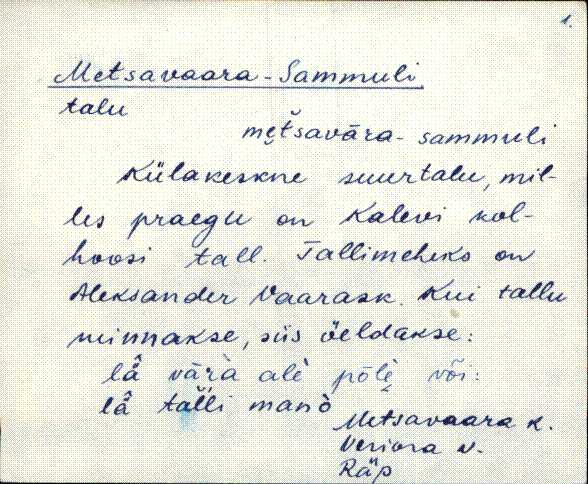 1.
Metsavaara-Sammuli
talu
me̬t̆šavāra-sammuli
Külakeskne suurtalu, mil-
les praegu on Kalevi kol-
hoosi tall. Tallimeheks on
Aleksander Vaarask. Kui tallu
minnakse, siis öeldakse:
lǟ̀ vārà alè pōlè̬ või:
lǟ̀ talli manò
Metsavaara k.
Veriora v.
Räp